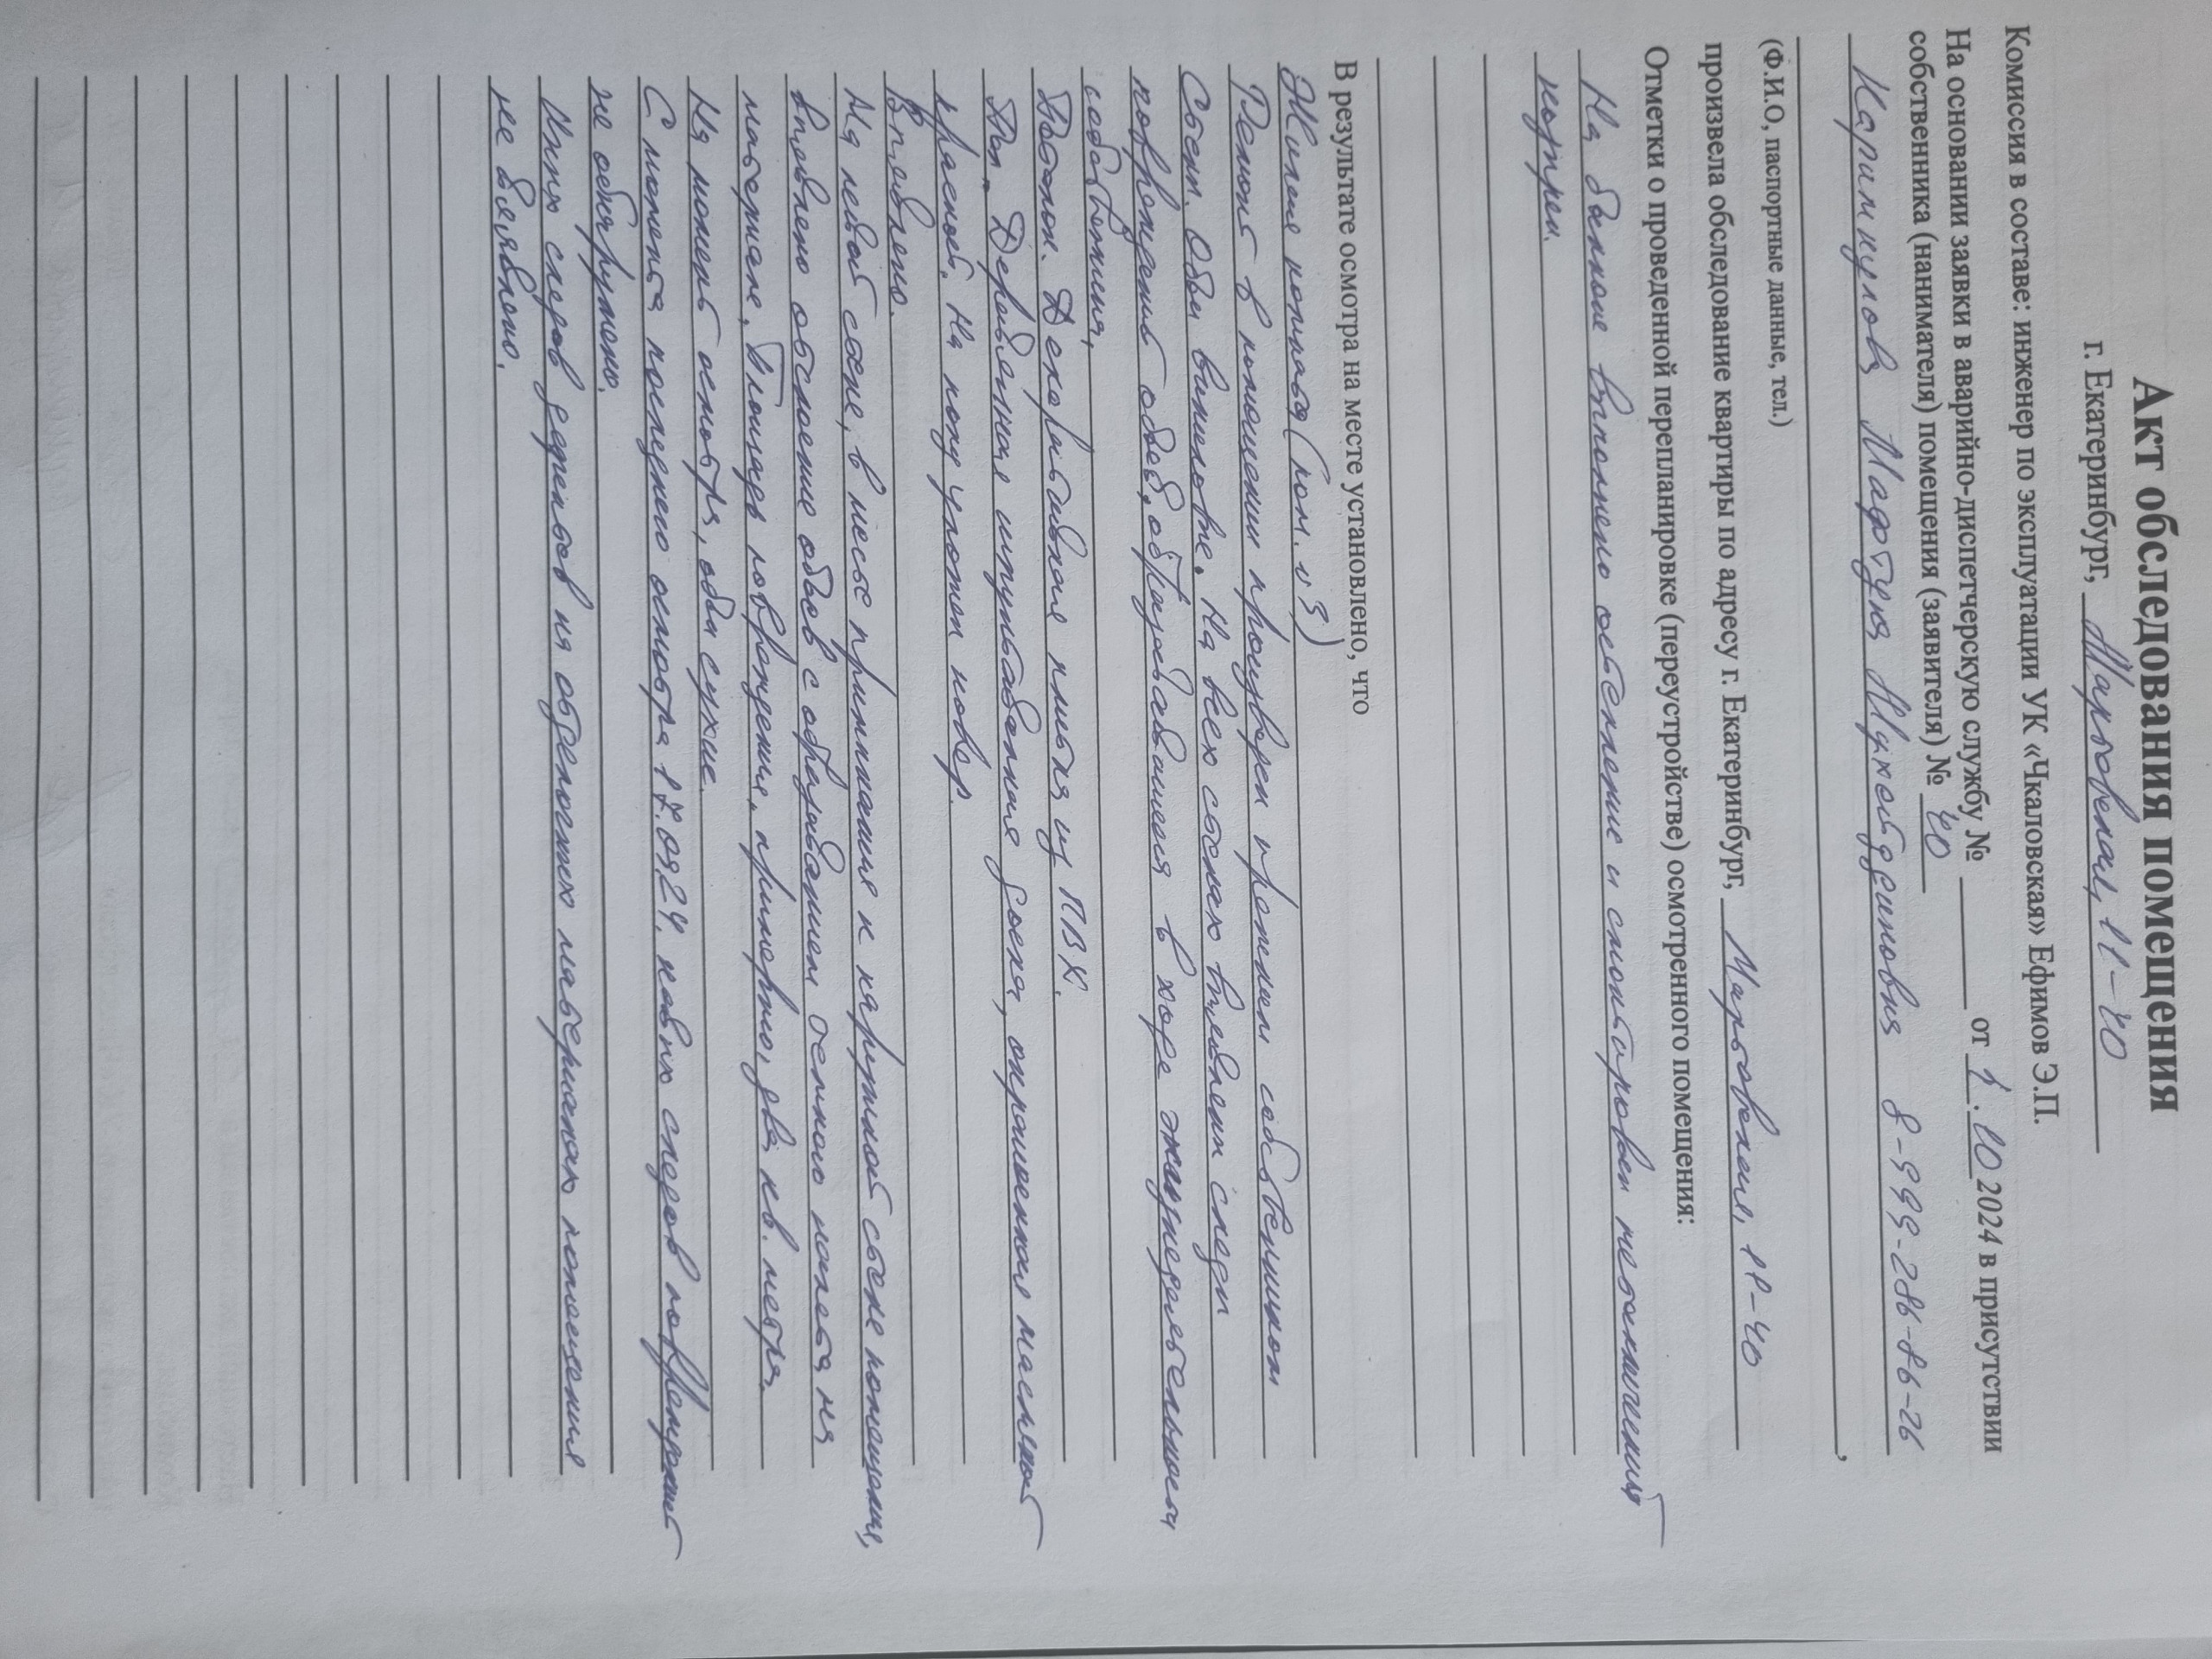 Акт обследования помещения
г. Екатеринбург, Мартовская, 11-40
Комиссия в составе: инженер по эксплуатации УК «Чкаловская» Ефимов Э.П.
На основании заявки в аварийно-диспетчерскую службу № от 1.10 2024 в присутствии
собственника (нанимателя) помещения (заявителя) № 40
Каримкулова 8-999-286-86-26
,
(Ф.И.О, паспортные данные, тел.)
произвела обследование квартиры по адресу г. Екатеринбург, Мартовская, 11-40
Отметки о проведенной перепланировке (переустройстве) осмотренного помещения:
На балконе выполнено остекление и смонтирован металлический
каркас.
В результате осмотра на месте установлено, что
Жилая комната (пом. №3)
Ремонт в помещении произведен прежним собственником
Стены. Обои виниловые. На всех стенах выявлены следы
повреждений обоев, образовавшиеся в ходе жизнедеятельности
собственника.
Потолок. Декоративная плитка из ПВХ.
Пол. Деревянная шпунтованная доска, окрашенная масляной
краской. На полу уложен ковер.
Выявлено.
На левой стене, в месте примыкания к наружной стене помещения,
выявлено отслоение обоев с образованием темного налета на
материале. Площадь повреждения, примерно, два кв. метра.
На момент осмотра, обои сухие.
С момента последнего осмотра 17.09.24. новых следов повреждений
не обнаружено.
Иных следов дефектов на отделочных материалах помещения
не выявлено.